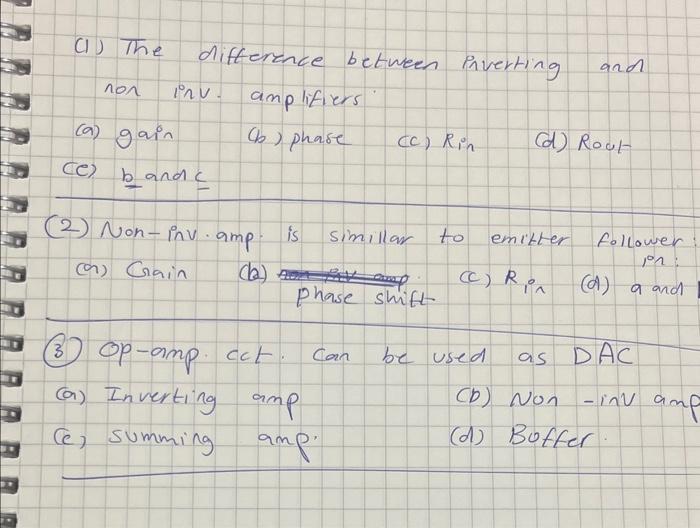 (1) The difference between inverting and
non inv. amplifiers
(a) gain (b) phase (c) Rin (d) Rout
(e) b and c
(2) Non-inv. amp. is simillar to emitter follower
in:
(a) Gain (b) (c) Rin (d) a and
phase shift
(3) Op-amp. cct. can be used as DAC
(a) Inverting amp (b) Non-inv amp
(c) summing amp. (d) Boffer.